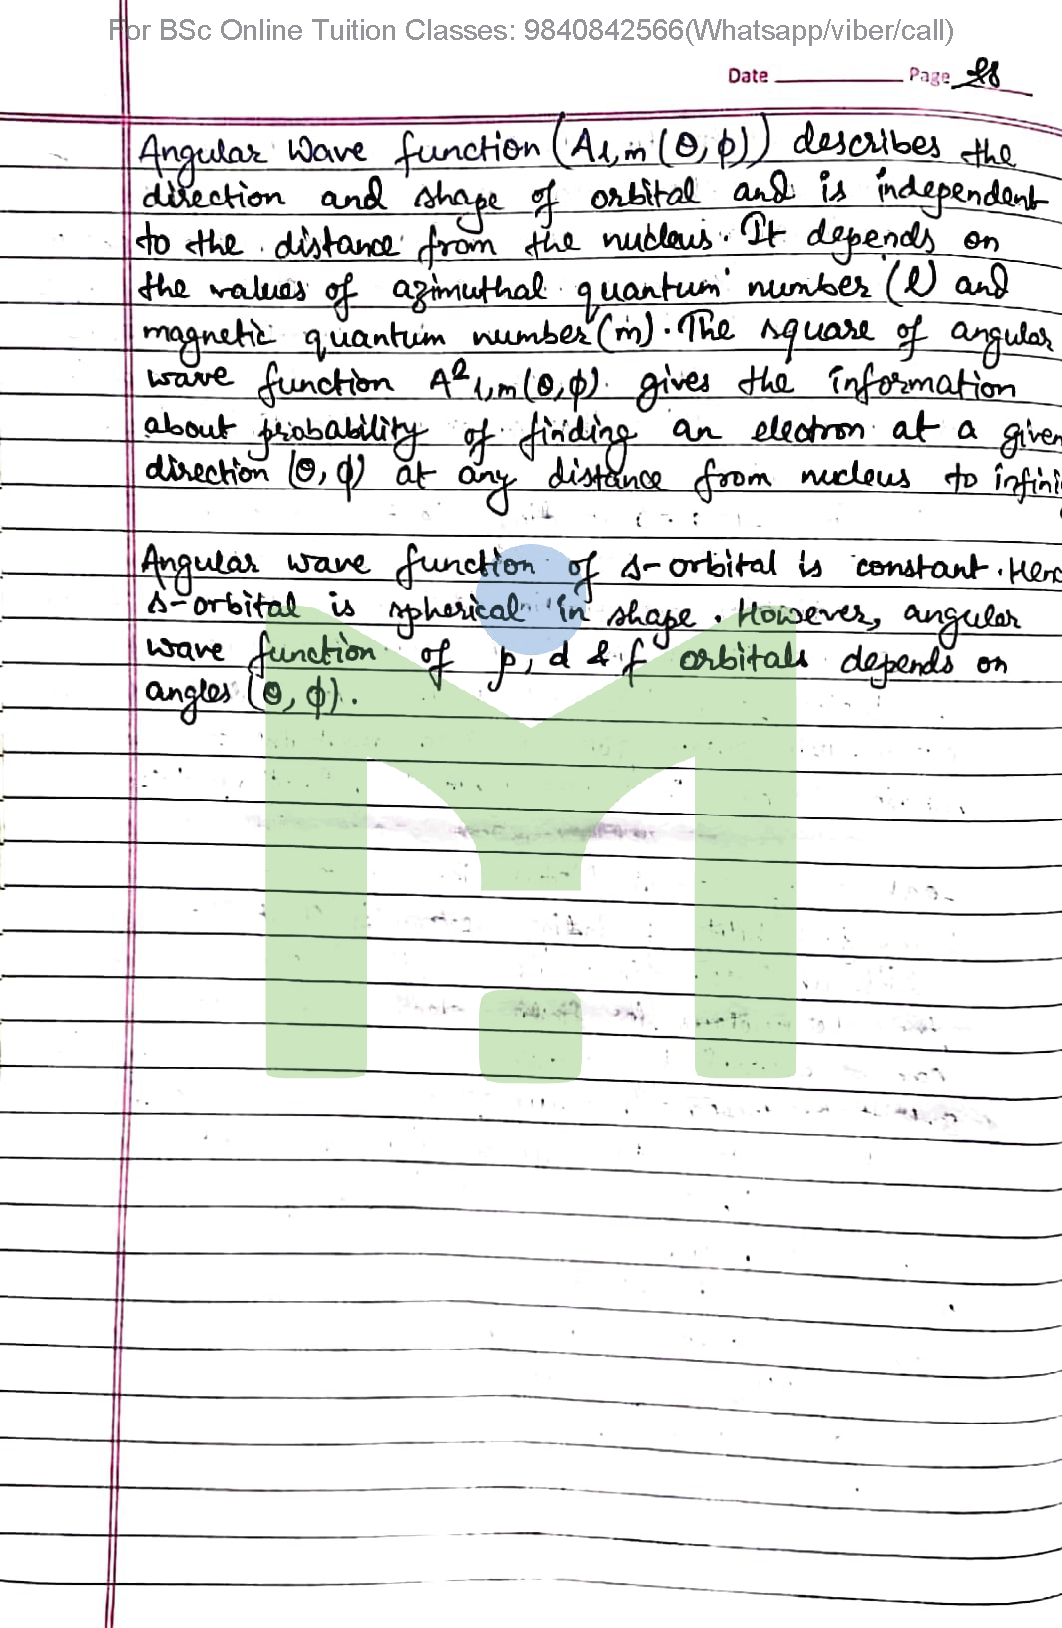 For BSc Online Tuition Classes: 9840842566(Whatsapp/viber/call)
Date Page 28
Angular Wave function (Al,m (θ,ϕ)) describes the
direction and shape of orbital and is independent
to the distance from the nucleus. It depends on
the values of azimuthal quantum number (l) and
magnetic quantum number (m). The square of angular
wave function A²l,m(θ,ϕ) gives the information
about probability of finding an electron at a given
direction (θ,ϕ) at any distance from nucleus to infini
Angular wave function of s-orbital is constant. Henc
s-orbital is spherical in shape. However, angular
wave function of p, d & f orbitals depends on
angles (θ, ϕ).